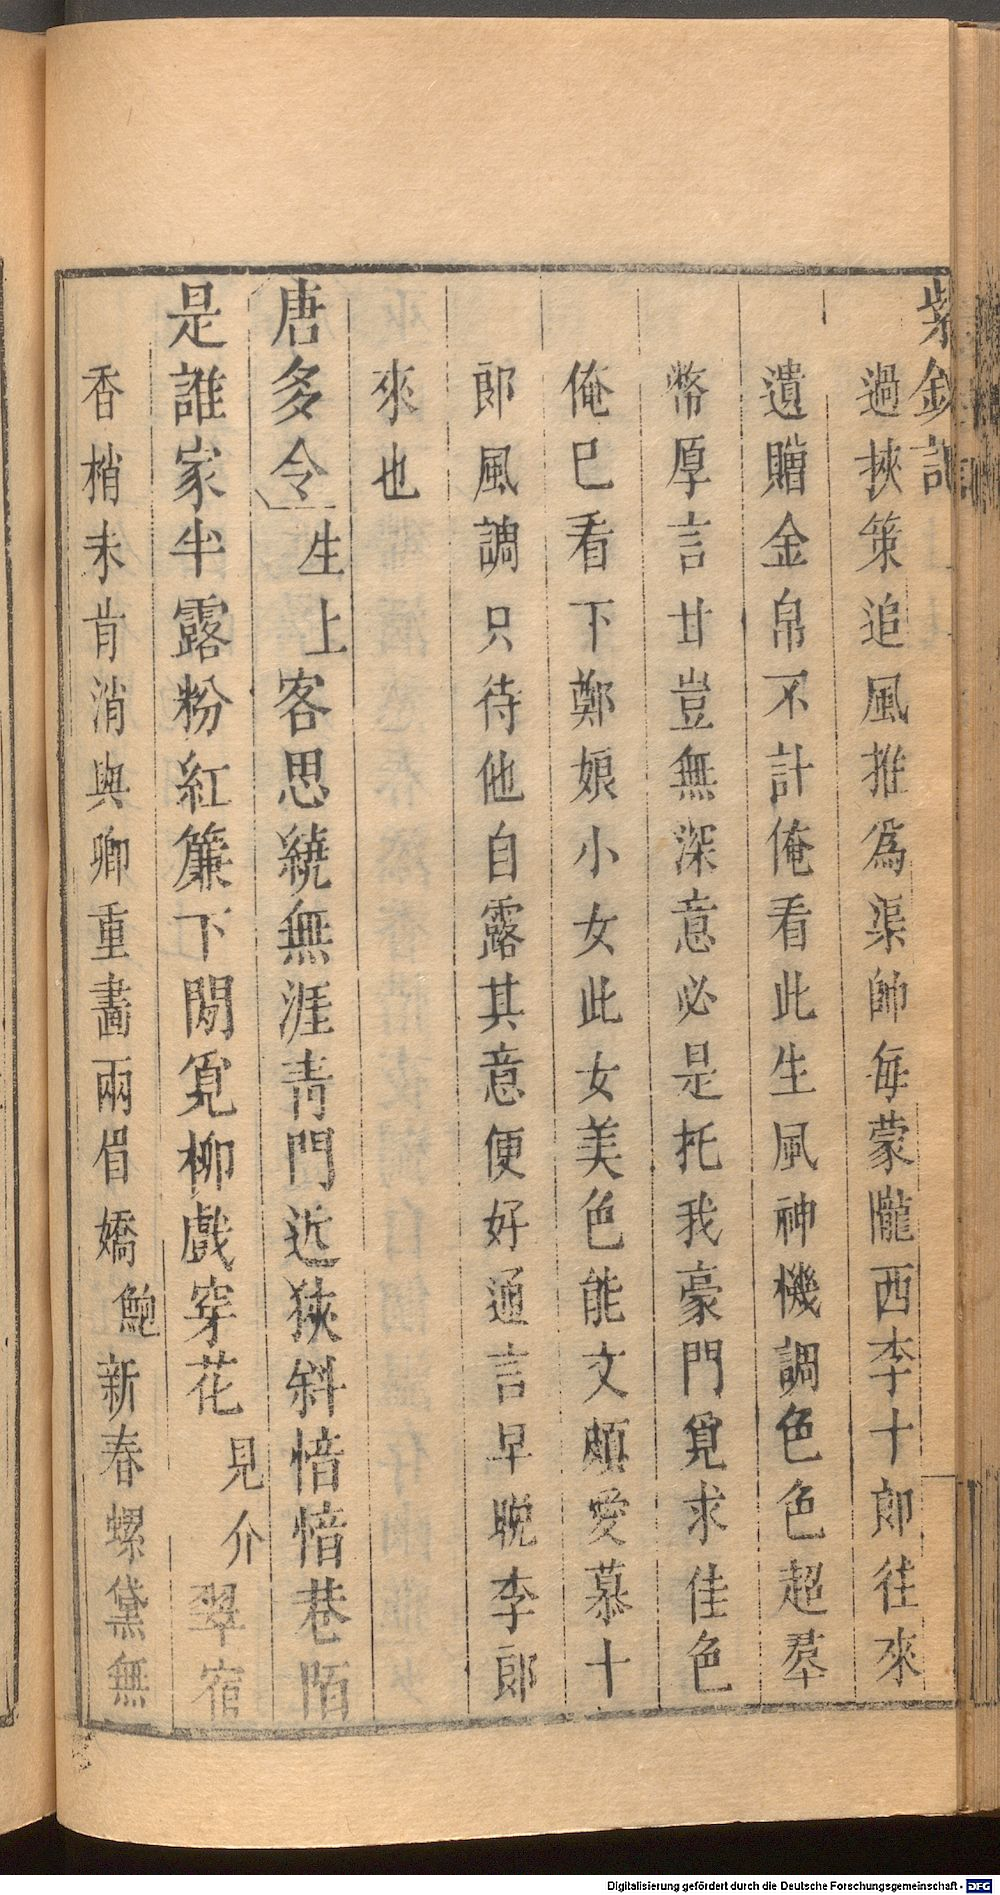 紫釵記
過挾策追風推為渠帥每蒙隴西李十郎往來
遺贈金帛不計俺看此生風神機調色色超羣
幣厚言甘豈無深意必是托我豪門覓求佳色
俺已看下鄭娘小女此女美色能文頗愛慕十
郎風調只待他自露其意便好通言早晚李郎
來也
唐多令 生上 客思繞無涯青門近狹斜愔愔巷陌
是誰家半露粉紅簾下閒覓柳戲穿花 見介 翠宿
香梢未肯消與卿重畫兩眉嬌 鮑 新春螺黛無
Digitalisierung gefördert durch die Deutsche Forschungsgemeinschaft - DFG